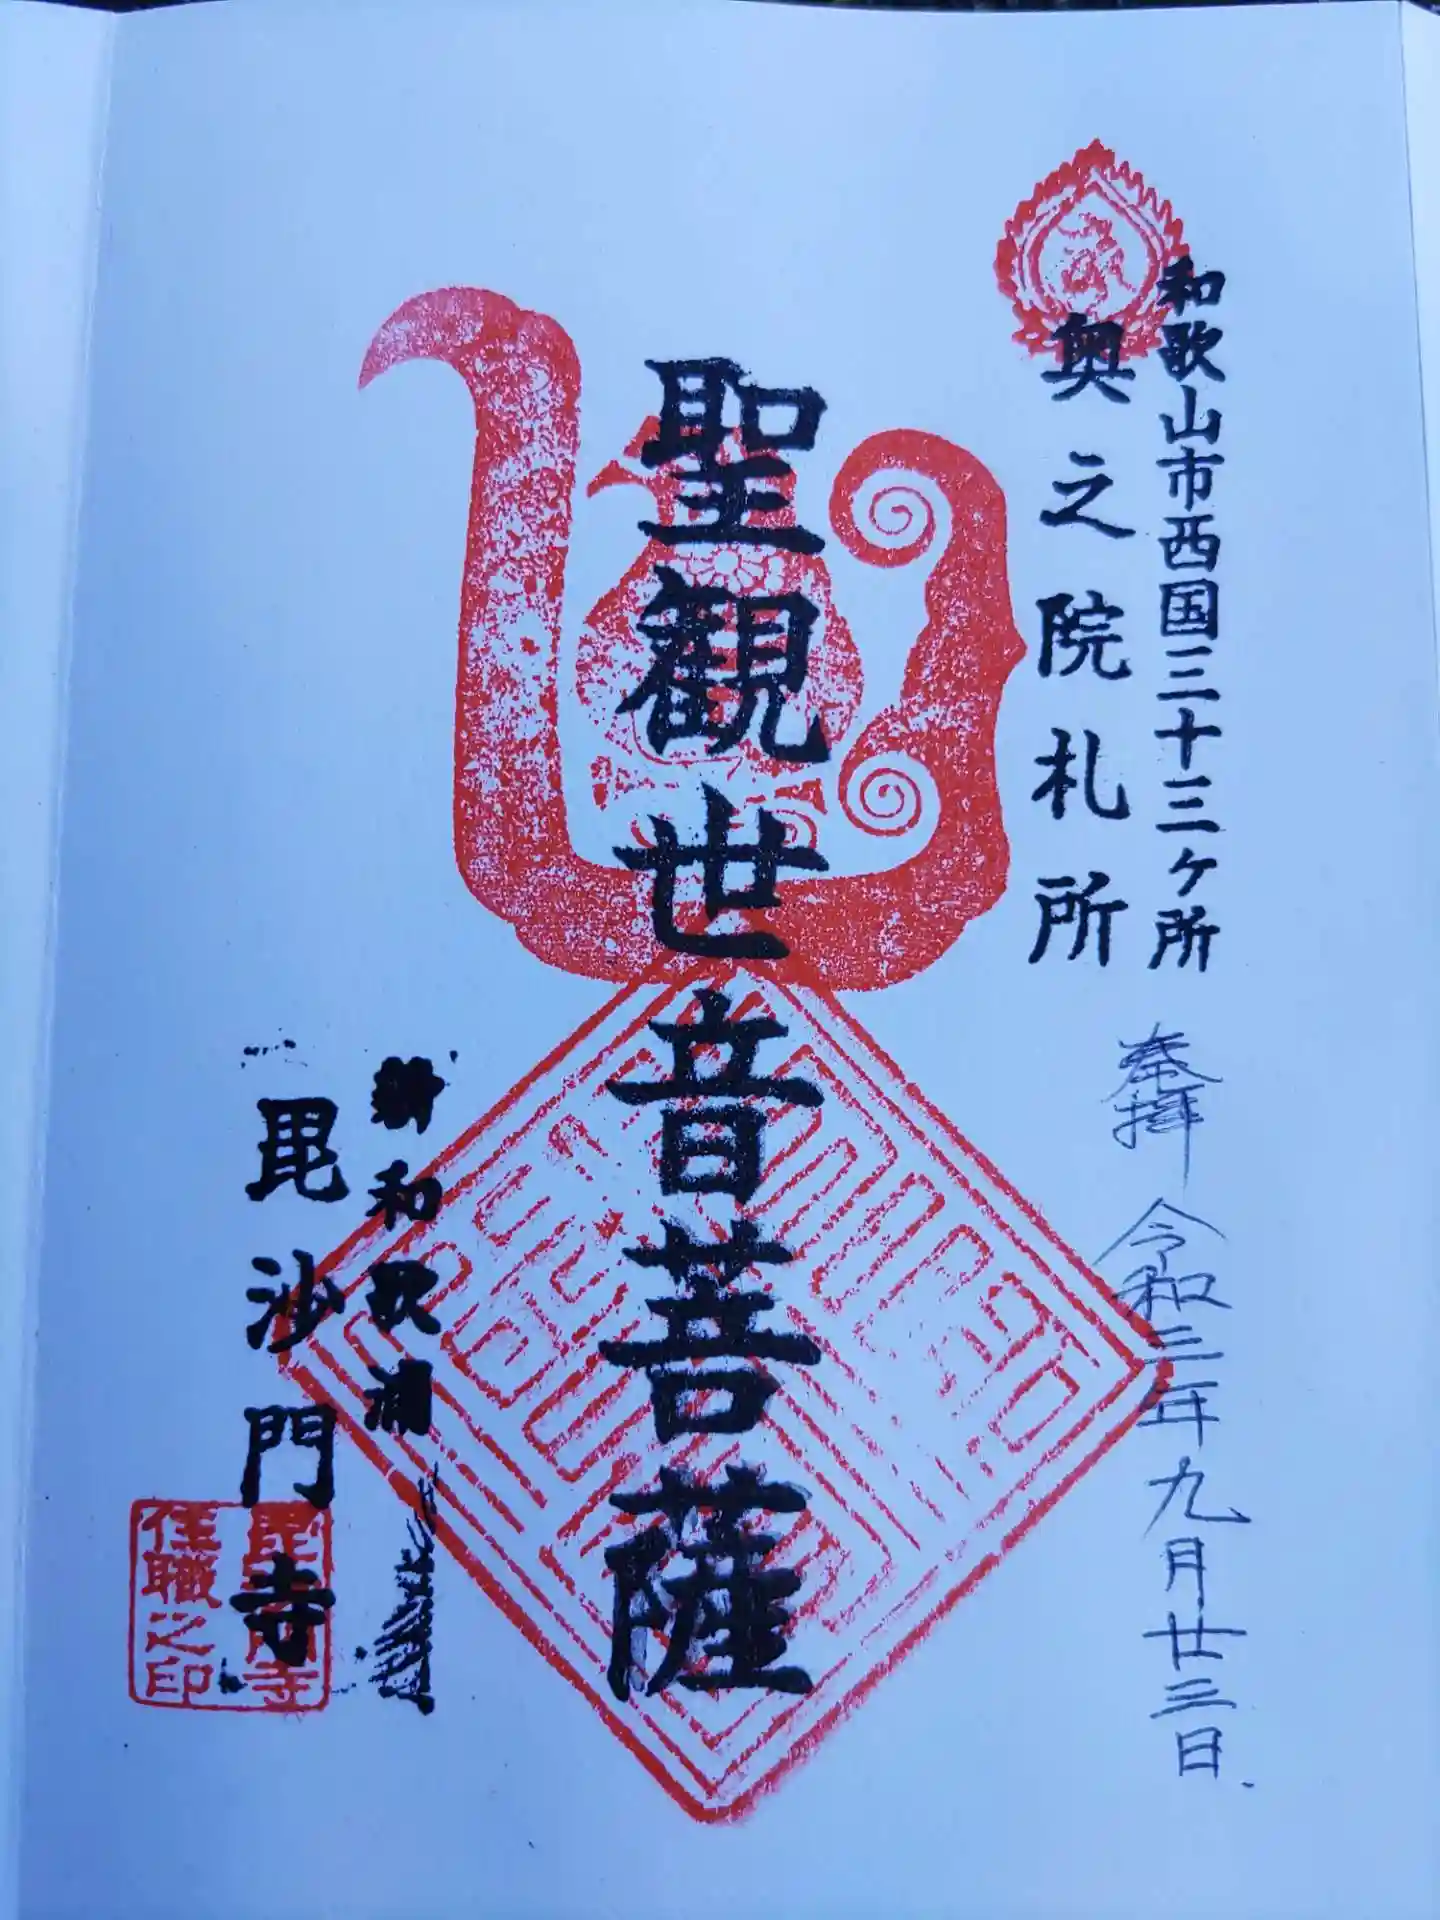 和歌山市西国三十三ヶ所
奥之院札所
奉拝 令和三年九月廿三日
聖観世音菩薩
新和歌浦
毘沙門寺
毘沙門寺
住職之印